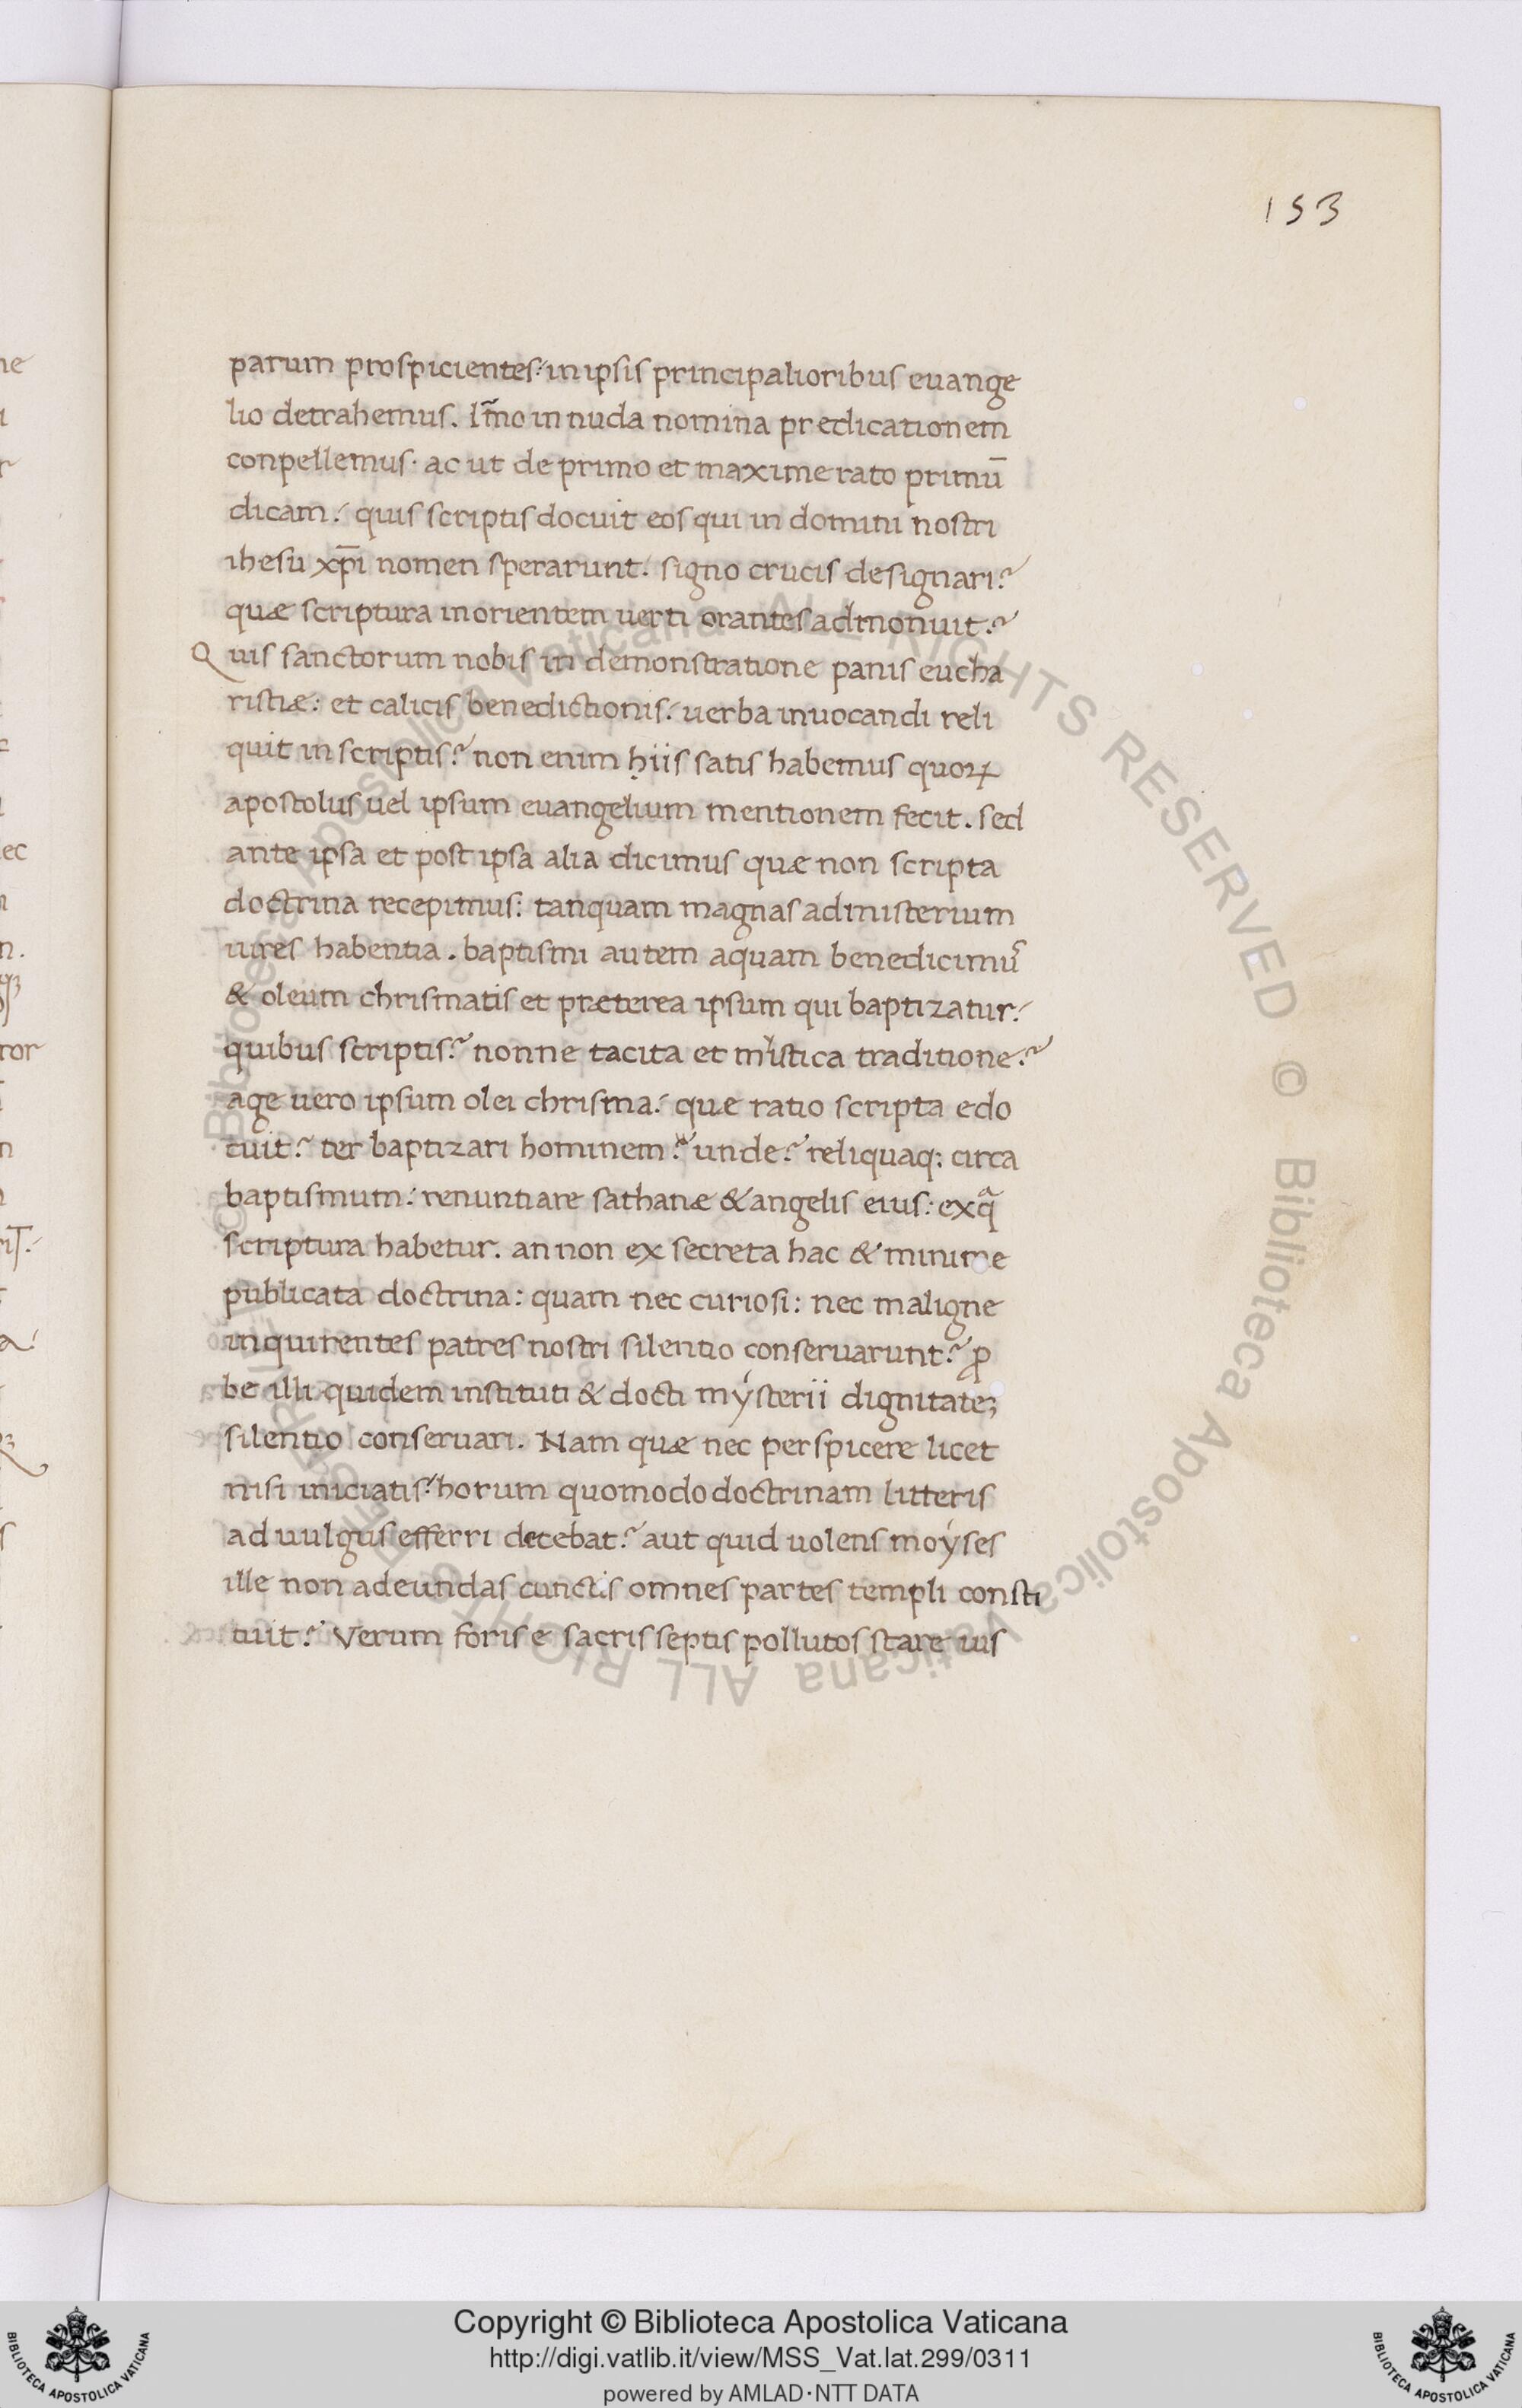 153
parum prospicientes: in ipsis principalioribus euange
lio detrahemus. Im̃o in nuda nomina predicationem
conpellemus. ac ut de primo et maxime rato primū
dicam: quis scriptis docuit eos qui in domini nostri
ihesu xp̄i nomen sperarunt: signo crucis designari?
quæ scriptura in orientem uerti orantes admonuit?
Quis sanctorum nobis in demonstratione panis eucha
ristiæ: et calicis benedictionis: uerba inuocandi reli
quit in scriptis? non enim ḥiis satis habemus quoꝝ
apostolus uel ipsum euangelium mentionem fecit. sed
ante ipsa et post ipsa alia dicimus quæ non scripta
doctrina recepimus: tanquam magnas ad misterium
uires habentia. baptismi autem aquam benedicimuˢ
& oleum chrismatis et præterea ipsum qui baptizatur:
quibus scriptis? nonne tacita et mistica traditione?
age uero ipsum olei chrisma: quæ ratio scripta edo
cuit? ter baptizari hominem? unde? reliquaq; circa
baptismum: renuntiare sathanæ & angelis eius: ex qᵃ
scriptura habetur. an non ex secreta hac & minime
publicata doctrina: quam nec curiosi: nec maligne
inquirentes patres nostri silentio conseruarunt? ꝓ
be illi quidem instituti & docti mẏsterii dignitatez
silentio conseruari. Nam quæ nec perspicere licet
nisi iniciatis: horum quomodo doctrinam litteris
ad uulgus efferri decebat? aut quid uolens moẏses
ille non adeundas cunctis omnes partes templi consti
tuit? Verum foris e sacris septis pollutos stare ius
Copyright © Biblioteca Apostolica Vaticana
http://digi.vatlib.it/view/MSS_Vat.lat.299/0311
powered by AMLAD·NTT DATA